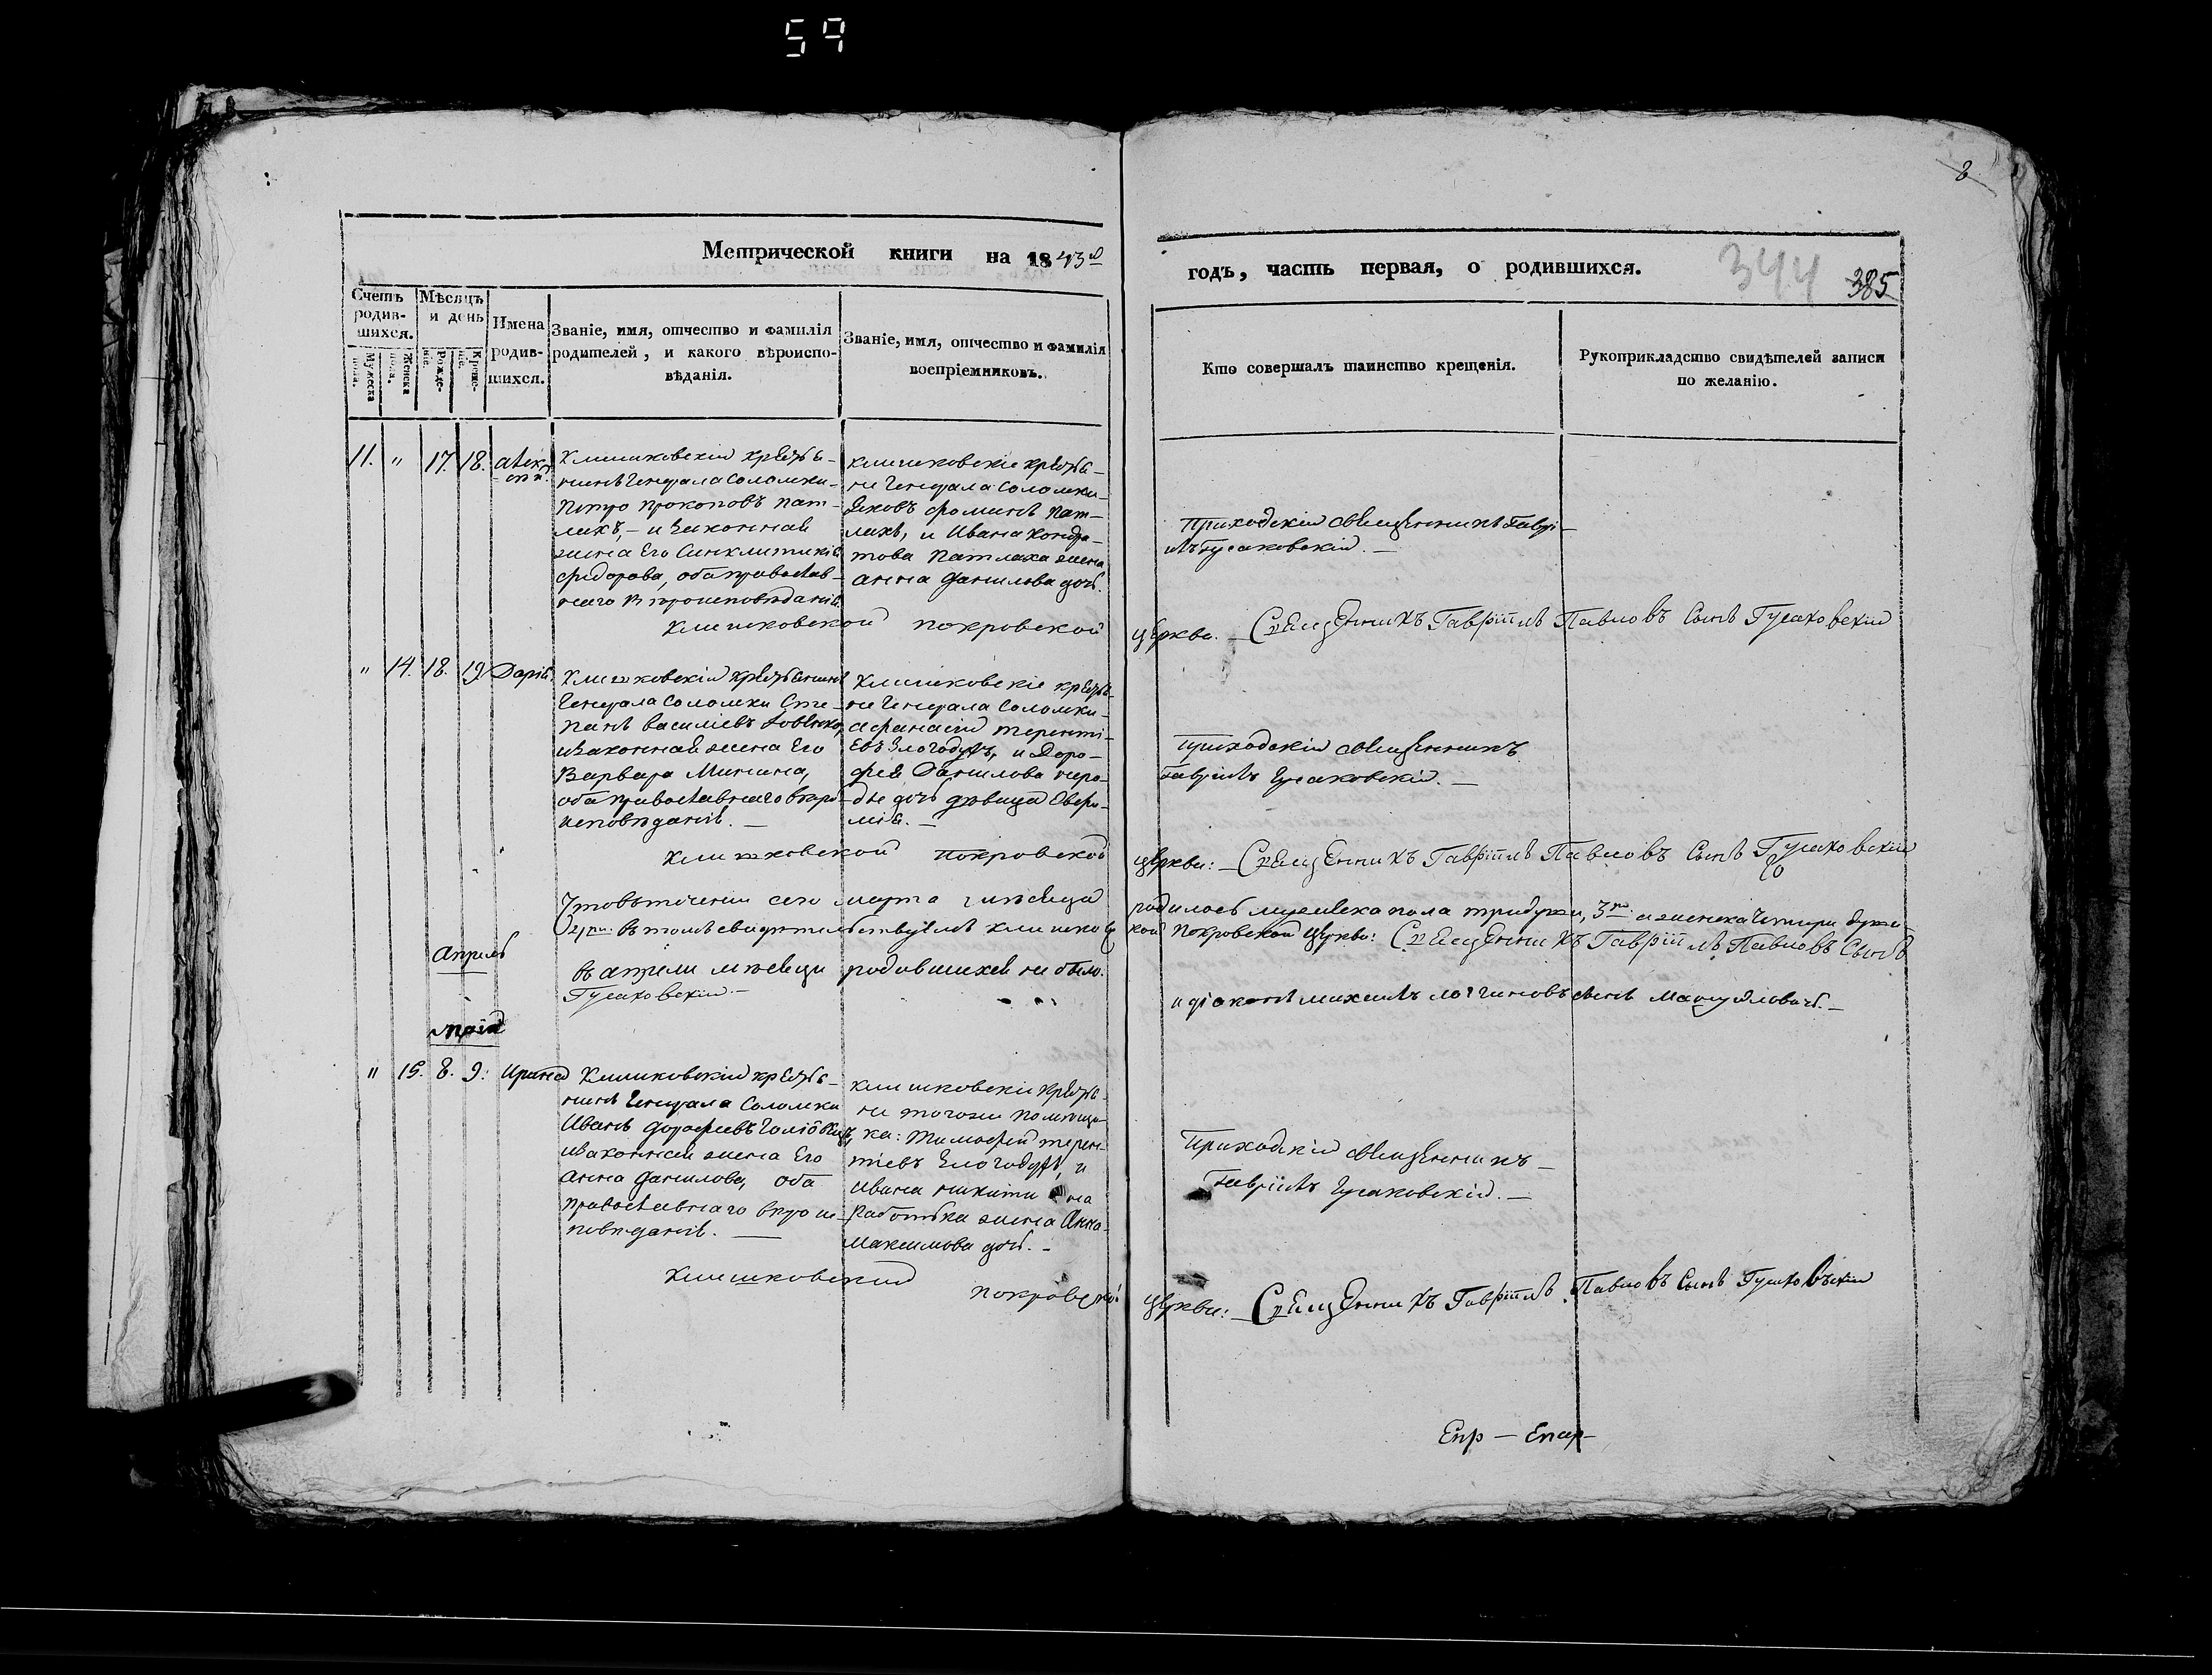 59
8
Метрической книги на 1843й
годъ, часть первая, о родившихся.
344 385
Счетъ родив-шихся.
Мужеска пола.
Женска пола.
Мѣсяцъ и день
Рожде-нія.
Креще-нія.
Имена родив-шихся.
Званіе, имя, отчество и фамилія
родителей, и какого вѣроиспо-
вѣданія.
Званіе, имя, отчество и фамилія
воспріемниковъ.
Кто совершалъ таинство крещенія.
Рукоприкладство свидѣтелей записи
по желанію.
11. " 17. 18.
Клишковскій крестья-
нинъ Генерала Соломки
Петро Прокоповъ Пат-
лахъ, - и законная
жена Его Синклитикія
Федорова, оба православ-
наго вѣроисповѣданія.
клишковскіе крестья-
не Генерала Соломки
Яковъ Фоминъ Пат-
лахъ, и Ивана Кондра-
това Патлаха жена
Анна Данилова дочь.
Приходскій священникъ Гаврі-
илъ Гусаковскій. —
Клишковской Покровской
церкви. — Священникъ Гавріилъ Павловъ Сынъ Гусаковскій
" 14. 18. 19 Дарія.
Клишковскій крестьянинъ
Генерала Соломки Сте-
панъ Василіевъ
и законная жена Его
Варвара Минина,
оба православнаго вѣро-
исповѣданія. —
Клишковскіе крестья-
не Генерала Соломки
Афанасій Теренті-
евъ и Доро-
фея Данилова
дочь дѣвица
Приходскій священникъ
Гавріилъ Гусаковскій. —
Клишковской Покровской
церкви: — Священникъ Гавріилъ Павловъ Сынъ Гусаковскій
Что въ теченіи сего марта мѣсяца
родилось мужеска пола три души, 3. а женска четыри души
въ томъ свидѣтельствуемъ Клишков-
ской Покровской Церкви: Священникъ Гавріилъ Павловъ Сынъ
Апрель
въ апрели мѣсяци родившихся не было.
Гусаковскій —
и діаконъ Михаилъ Логгиновъ сынъ Мануйловичь. —
Маія
" 15. 8. 9. Ирина
Клишковскій крестья-
нинъ Генерала Соломки
Иванъ Дорофеевъ
и законная жена Его
Анна Данилова, оба
православнаго вѣроис-
повѣданія. —
клишковскіе крестья-
не того же помѣщи-
ка: Тимофей Терен-
тіевъ и
Ивана
жена Анна
Максимова дочь. —
Приходскій священникъ —
Гавріилъ Гусаковскій. —
Клишковской Покровской
церкви: — Священникъ Гавріилъ Павловъ Сынъ Гусаковскій